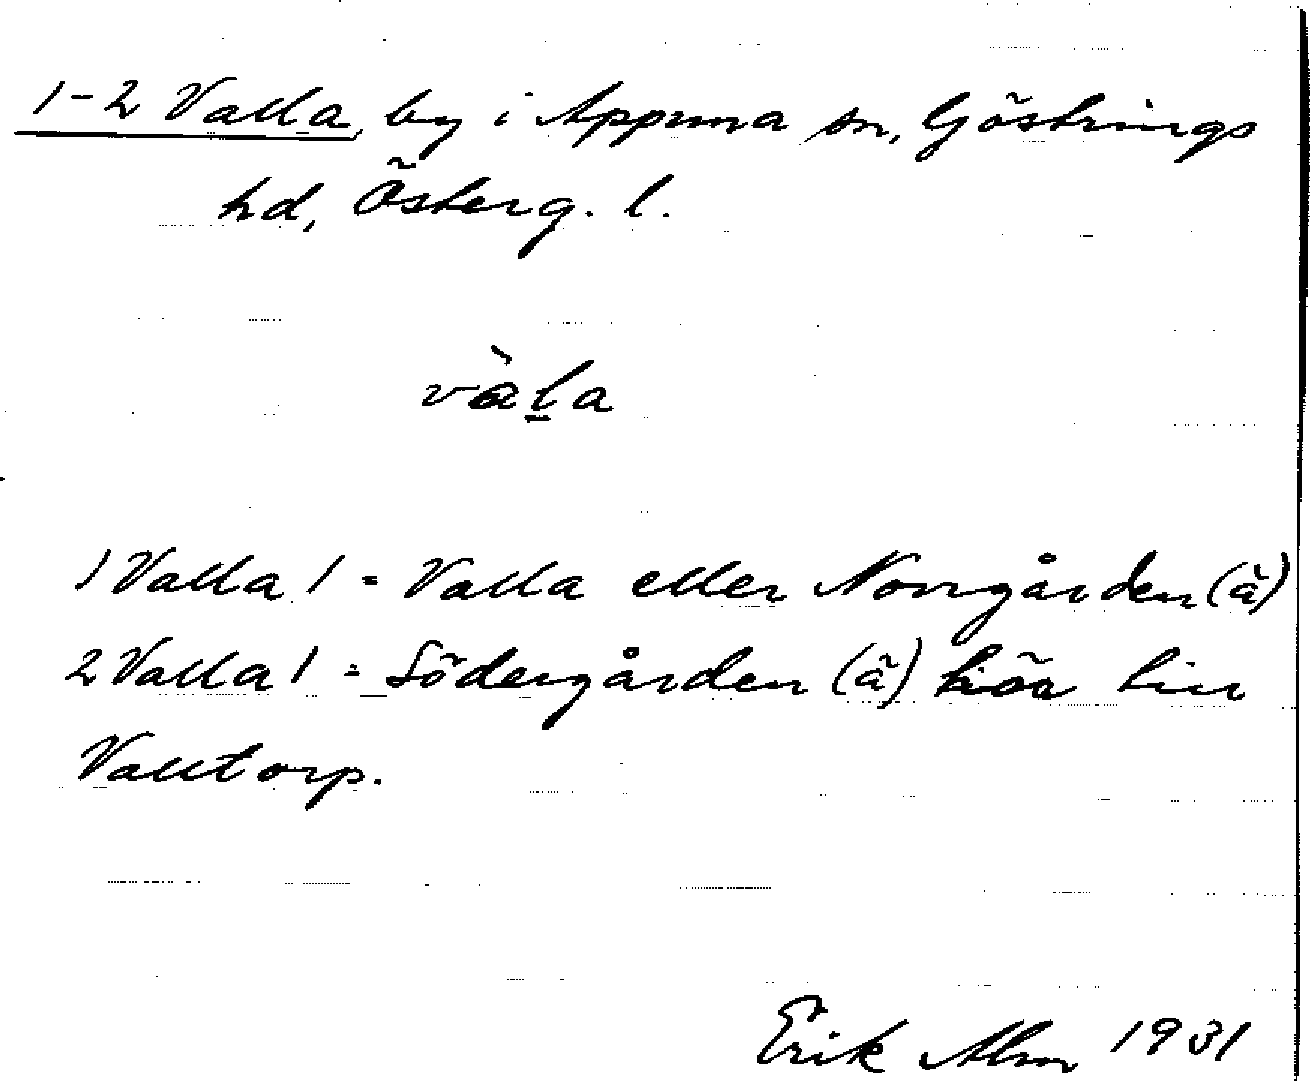 1-2 Valla, by i Appuna sn, Göstrings
hd, Österg. l.
vàḻa
1 Valla 1 = Valla eller Norrgården (ä)
2 Valla 1 = Södergården (ä) hör till
Valltorp.
Erik Alm 1931